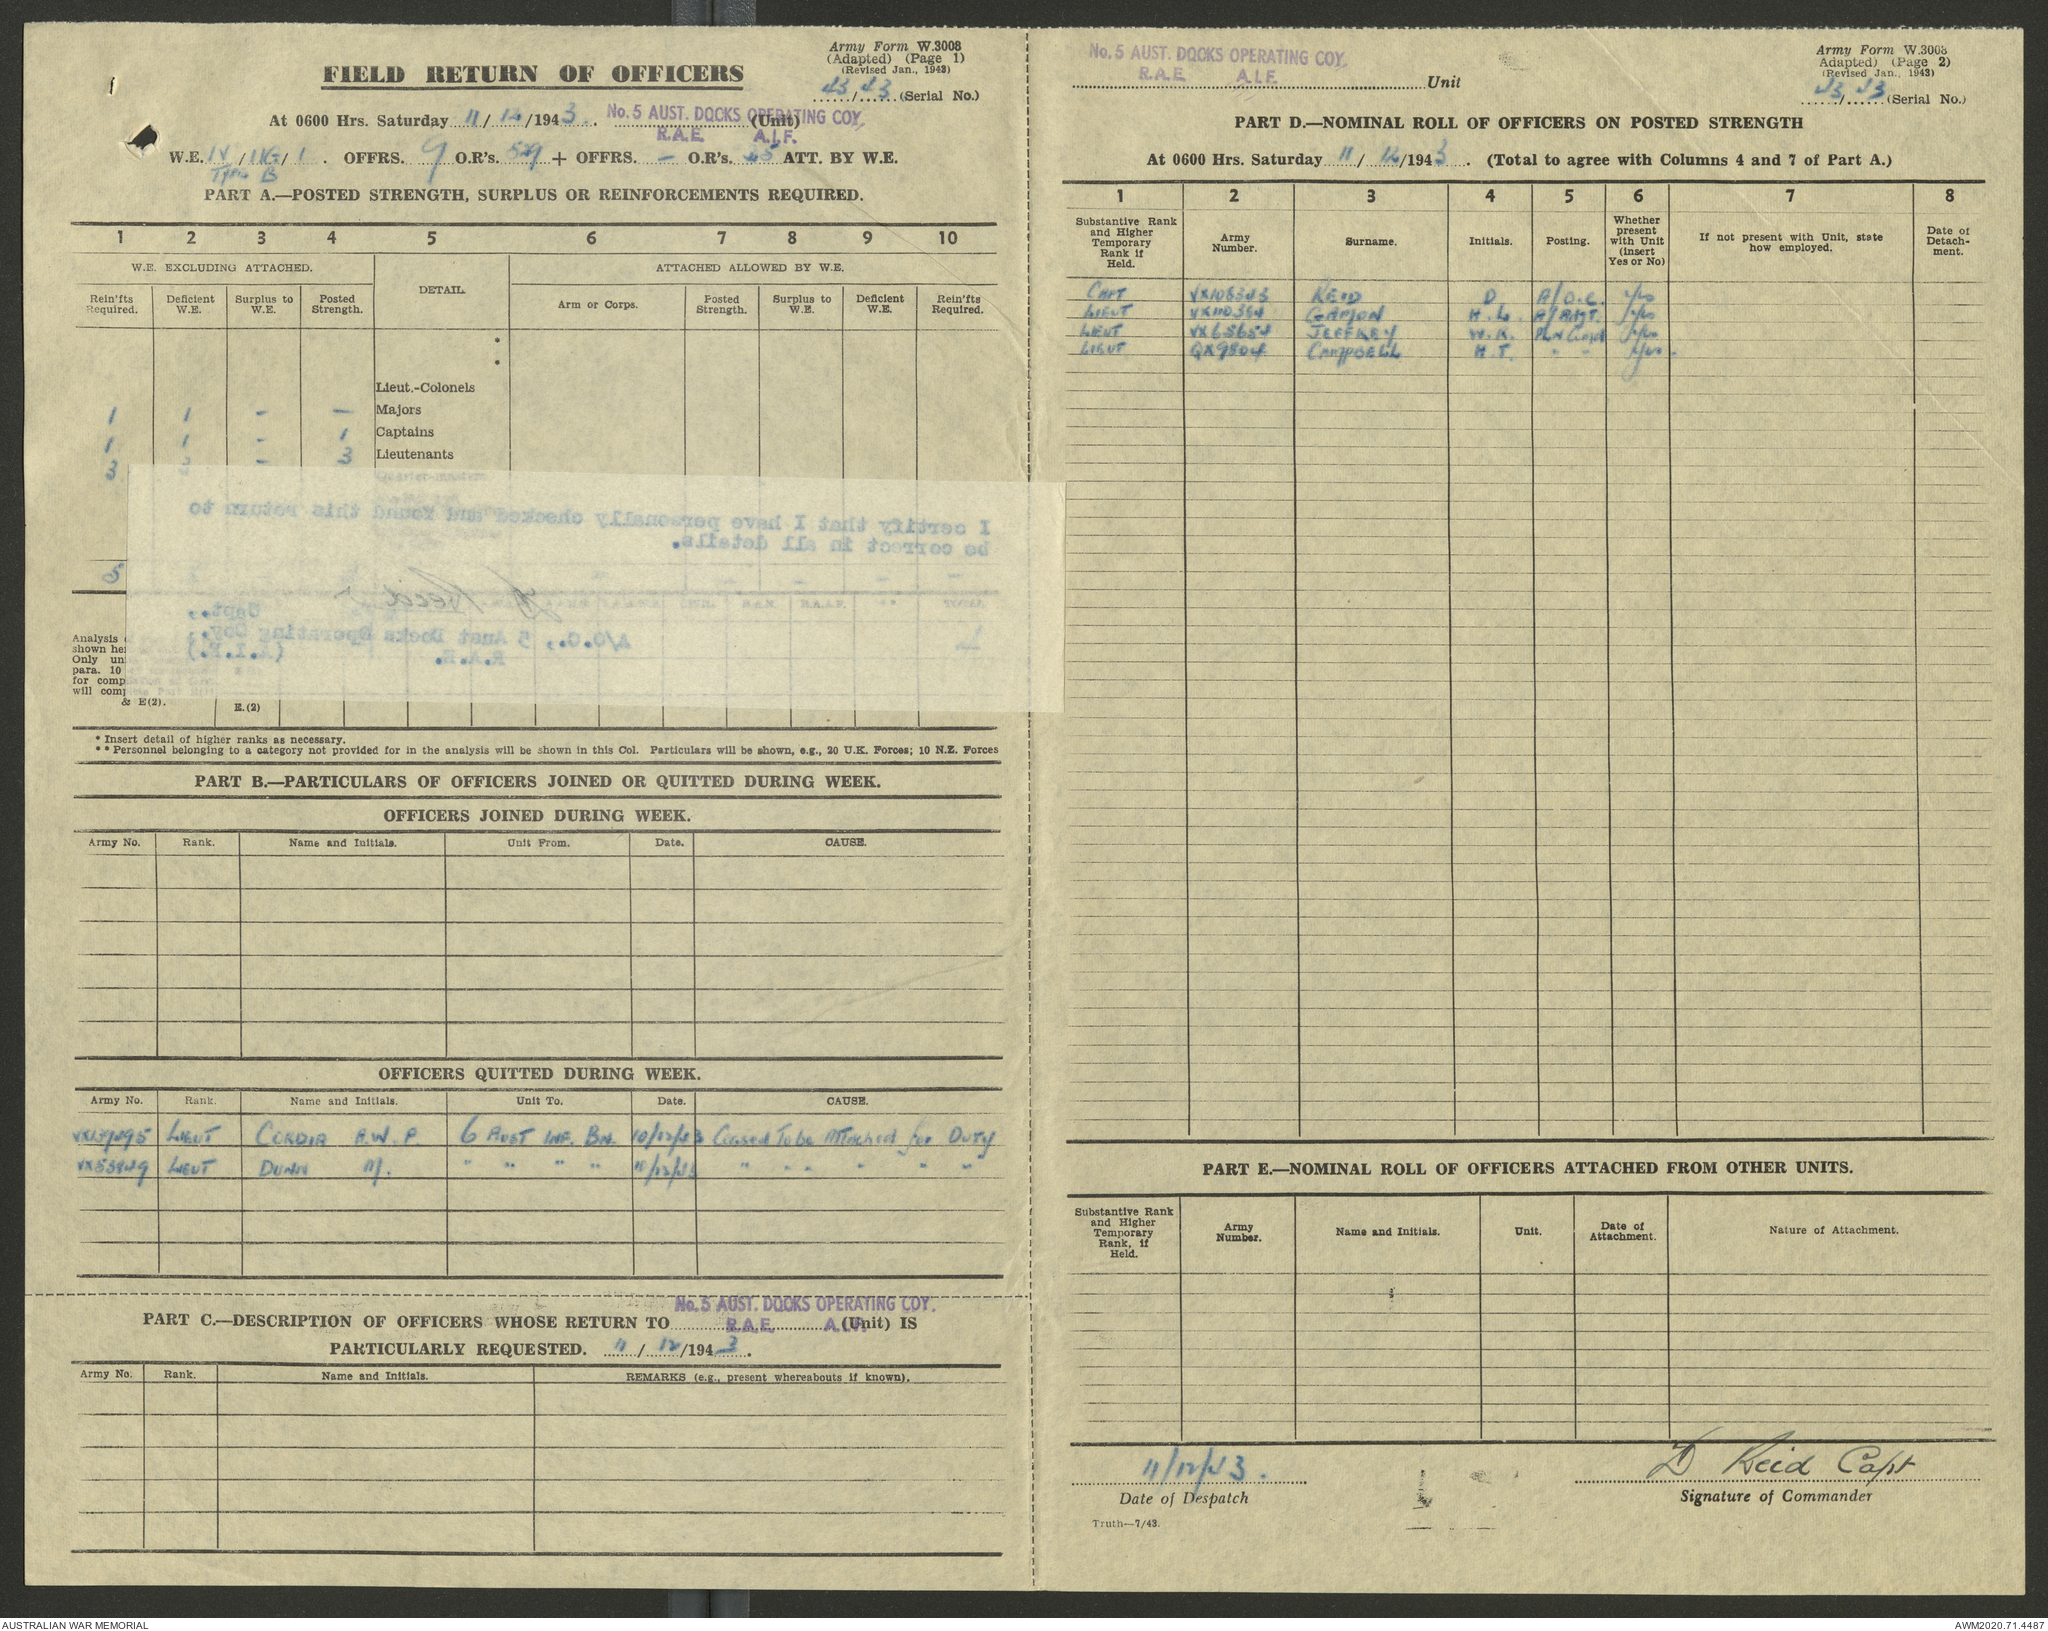 Army Form W.3008
(Adapted) (Page 1)
(Revised Jan., 1943)
43/43 (Serial No.)
FIELD RETURN OF OFFICERS
At 0600 Hrs. Saturday 11/12/1943. No. 5 AUST. DOCKS OPERATING COY. (Unit)
R.A.E. A.I.F.
W.E. OFFRS. 9 O.R's. 529 + OFFRS. — O.R's. 45 ATT. BY W.E.
PART A.—POSTED STRENGTH, SURPLUS OR REINFORCEMENTS REQUIRED.
1 2 3 4 5 6 7 8 9 10
W.E. EXCLUDING ATTACHED. DETAIL. ATTACHED ALLOWED BY W.E.
Rein'fts Required. Deficient W.E. Surplus to W.E. Posted Strength. Arm or Corps. Posted Strength. Surplus to W.E. Deficient W.E. Rein'fts Required.
*
*
Lieut.-Colonels
1 1 – — Majors
1 1 – 1 Captains
3 – 3 Lieutenants
Quarter-masters
I certify that I have personally checked and found this return to
be correct in all details.
5
D Reid
Capt.,
A/O.C., 5 Aust Docks Operating Coy.,
R.A.E. (A.I.F.)
Analysis
shown
Only
para. 10
for comp
will comp
& E(2).
E.(2)
* Insert detail of higher ranks as necessary.
** Personnel belonging to a category not provided for in the analysis will be shown in this Col. Particulars will be shown, e.g., 20 U.K. Forces; 10 N.Z. Forces
PART B.—PARTICULARS OF OFFICERS JOINED OR QUITTED DURING WEEK.
OFFICERS JOINED DURING WEEK.
Army No. Rank. Name and Initials. Unit From. Date. CAUSE.
OFFICERS QUITTED DURING WEEK.
Army No. Rank. Name and Initials. Unit To. Date. CAUSE.
LIEUT CORDIA A.W.P. 6 AUST INF. BN. 10/12/43 Ceased To be Attached for Duty
VX53949 LIEUT DUNN M. " " " " 11/12/43 " " " " " "
PART C.—DESCRIPTION OF OFFICERS WHOSE RETURN TO No. 5 AUST. DOCKS OPERATING COY. (Unit) IS
R.A.E. A.I.F.
PARTICULARLY REQUESTED. 11/12/1943.
Army No. Rank. Name and Initials. REMARKS (e.g., present whereabouts if known).
No. 5 AUST. DOCKS OPERATING COY.
R.A.E. A.I.F.
Unit
Army Form W.3008
Adapted) (Page 2)
(Revised Jan., 1943)
43/43 (Serial No.)
PART D.—NOMINAL ROLL OF OFFICERS ON POSTED STRENGTH
At 0600 Hrs. Saturday 11/12/1943. (Total to agree with Columns 4 and 7 of Part A.)
1 2 3 4 5 6 7 8
Substantive Rank and Higher Temporary Rank if Held. Army Number. Surname. Initials. Posting. Whether present with Unit (insert Yes or No) If not present with Unit, state how employed. Date of Detach-ment.
CAPT VX108343 REID D. A/O.C. Yes
LIEUT VX110354 GAMON H.L. A/ADJT. Yes
LIEUT VX65654 JEFFREY W.K. Yes
LIEUT QX9804 CAMPBELL H.T. " " Yes
PART E.—NOMINAL ROLL OF OFFICERS ATTACHED FROM OTHER UNITS.
Substantive Rank and Higher Temporary Rank, if Held. Army Number. Name and Initials. Unit. Date of Attachment. Nature of Attachment.
11/12/43. D Reid Capt
Date of Despatch Signature of Commander
Truth—7/43.
AUSTRALIAN WAR MEMORIAL AWM2020.71.4487